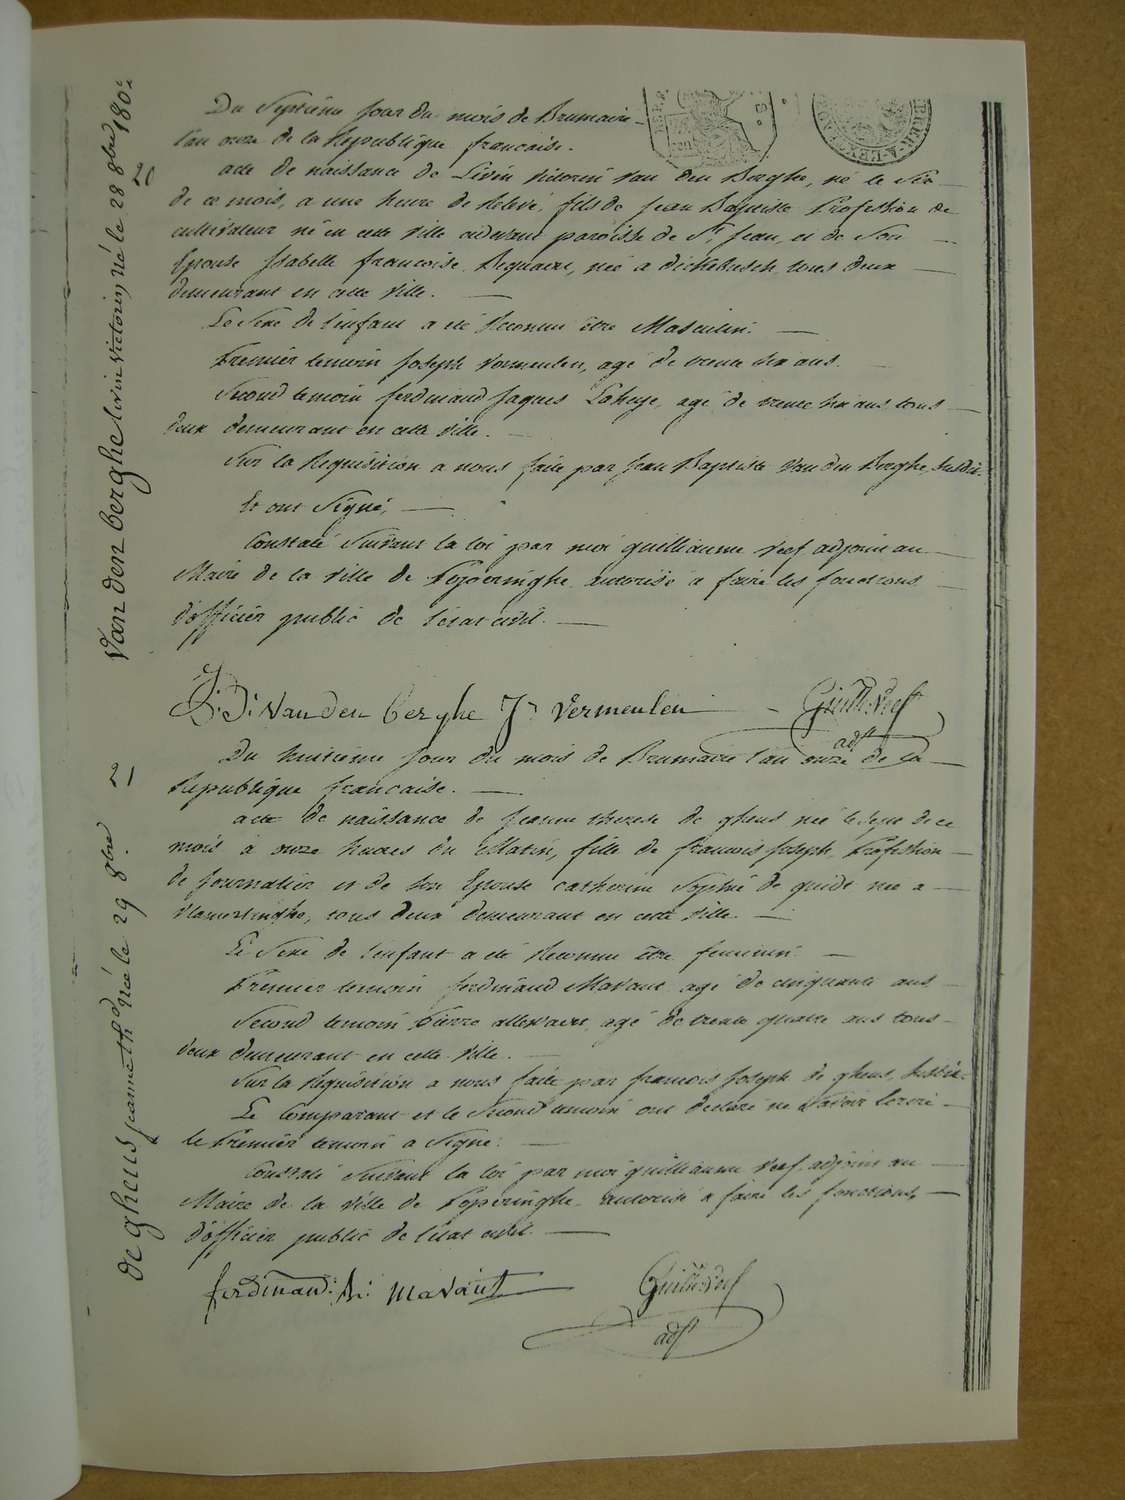 Du Septieme jour du mois de Brumaire
l'an onze de la Republique francaise.
20
acte de naissance de Livin Victorin Van den Berghe, né le Six
de ce mois, a une heure de Relevé, fils de Jean Baptiste Profession de
cultivateur né en cette ville cidevant paroisse de St. Jean, et de Son
Epouse Isabelle francoise Bequaert, née a dickebusch, tous deux
demeurant en cette ville.
Le Sexe de l'enfant a été Reconnu être Masculin.
Premier temoin Joseph Vermeulen, agé de trente six ans.
Second temoin ferdinand Jaques Lahuye, agé de trente ans, tous
deux demeurant en cette ville.
Sur la Requisition a nous faite par Jean Baptiste Van den Berghe, Susdit.
Et ont Signé,
Constaté Suivant la loi par moi guilliaume Reef adjoint au
Maire de la ville de Poperinghe autorisé a faire les fonctions
d'officier public de l'état civil.
Van den berghe Livin Victorin, né le 28 8bre 1802
J: B: Van den berghe Jh Vermeulen Guill: Reef
adjt
21
Du huitieme jour du mois de Brumaire l'an onze de la
Republique francaise.
acte de naissance de Jeanne therese de gheus née le Sept de ce
mois à onze heures du Matin, fille de francois Joseph, Profession
de Journalier et de Son Epouse catherine Sophie de quidt née a
Vlamertinghe, tous deux demeurant en cette ville.
Le Sexe de l'enfant a été Reconnu être feminin.
Premier temoin ferdinand Mavaut agé de cinquante ans
Second temoin Pierre allewaert, agé de trente quatre ans tous
deux demeurant en cette ville.
Sur la Requisition a nous faite par francois Joseph de gheus, Susdit.
Le Comparant et le Second temoin ont declaré ne Savoir Écrire
le Premier temoin a Signé.
Constaté Suivant la loi par moi guilliaume Reef adjoint au
Maire de la ville de Poperinghe autorisé a faire les fonctions
d'officier public de l'état civil.
de gheus Jeanne thd née le 29 8bre
ferdinand: B: mavaut Guill: Reef
adjt